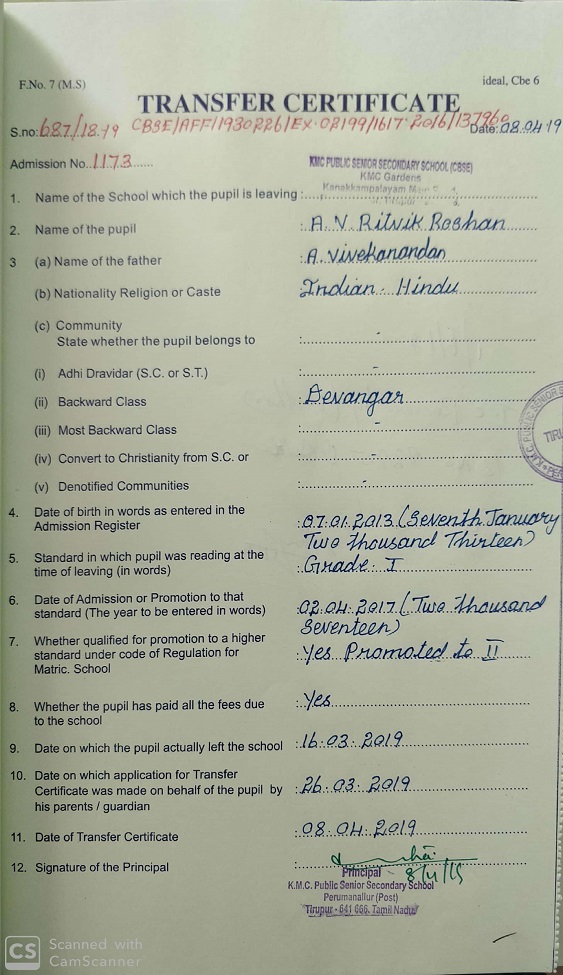 F.No. 7 (M.S)
ideal, Cbe 6
TRANSFER CERTIFICATE
S.no: 687/18.19 CBSE/AFF/1930226/EX-02199/1617-2016/137960 Date: 08.04.19
Admission No. 1173
KMC PUBLIC SENIOR SECONDARY SCHOOL (CBSE)
KMC Gardens
Kanakkampalayam
1. Name of the School which the pupil is leaving :
2. Name of the pupil : A. V. Ritvik Roshan
3 (a) Name of the father : A. Vivekanandan
(b) Nationality Religion or Caste Indian - Hindu
(c) Community
State whether the pupil belongs to : -
(i) Adhi Dravidar (S.C. or S.T.) : -
(ii) Backward Class : Devangar
(iii) Most Backward Class : -
(iv) Convert to Christianity from S.C. or : -
(v) Denotified Communities : -
4. Date of birth in words as entered in the : 07.01.2013 (Seventh January
Admission Register Two Thousand Thirteen)
5. Standard in which pupil was reading at the : Grade - I
time of leaving (in words)
6. Date of Admission or Promotion to that : 02.04.2017 (Two Thousand
standard (The year to be entered in words) Seventeen)
7. Whether qualified for promotion to a higher : Yes Promoted to II
standard under code of Regulation for
Matric. School
8. Whether the pupil has paid all the fees due : Yes
to the school
9. Date on which the pupil actually left the school : 16.03.2019
10. Date on which application for Transfer : 26.03.2019
Certificate was made on behalf of the pupil by
his parents / guardian
11. Date of Transfer Certificate : 08.04.2019
12. Signature of the Principal :
Principal
K.M.C. Public Senior Secondary School
Perumanallur (Post)
Tirupur - 641 666. Tamil Nadu
CS Scanned with
CamScanner